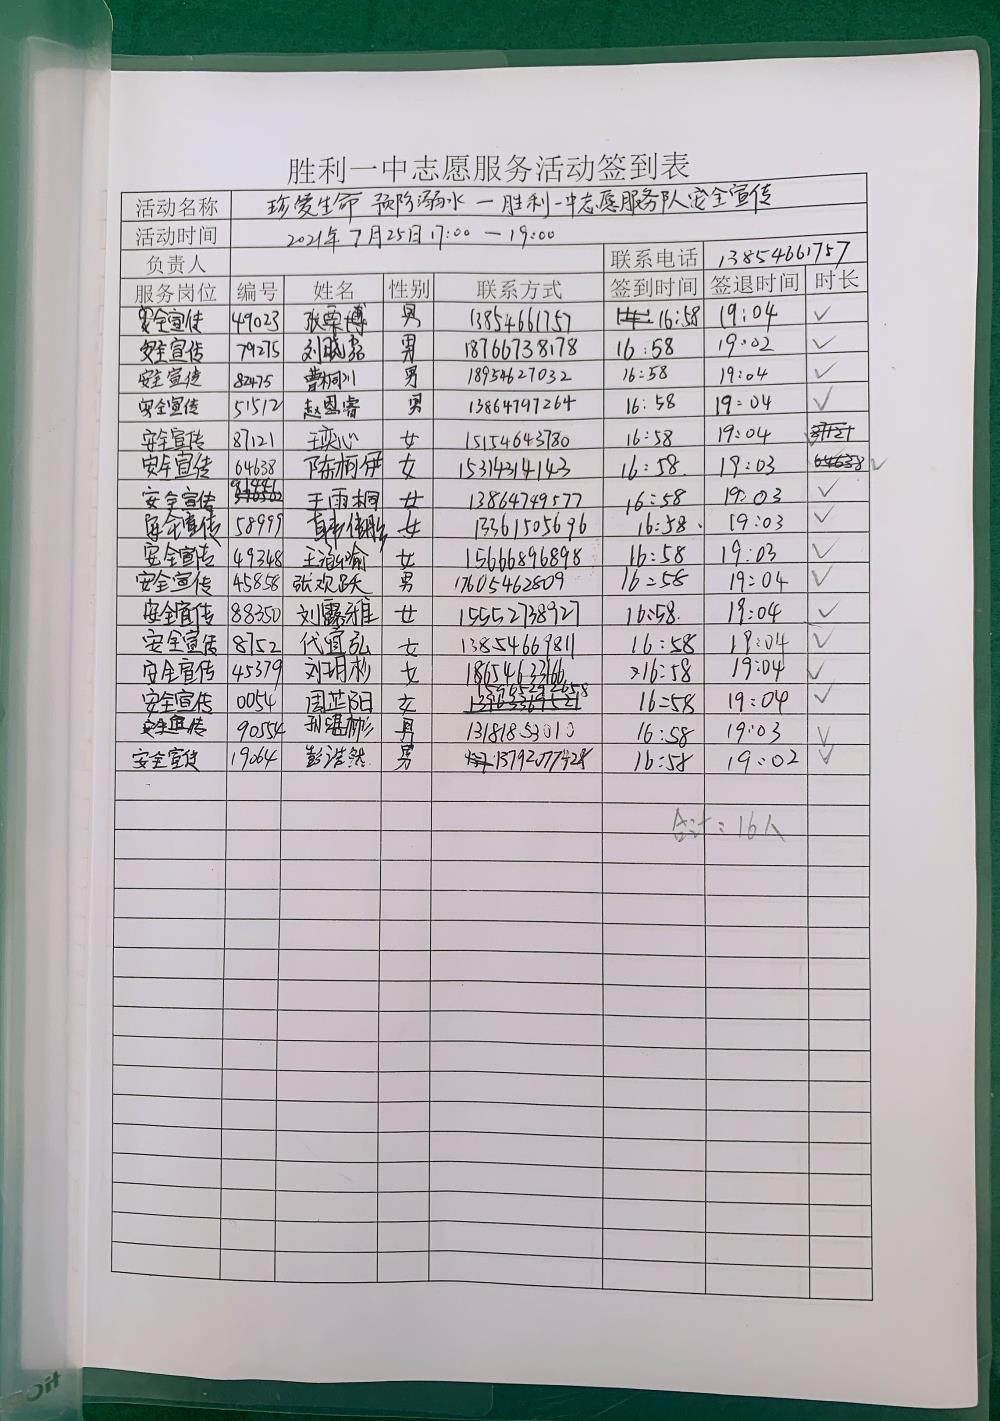 胜利一中志愿服务活动签到表
活动名称 珍爱生命 预防溺水 — 胜利一中志愿服务队安全宣传
活动时间 2021年7月25日17:00 — 19:00
负责人 联系电话 13854661757
服务岗位 编号 姓名 性别 联系方式 签到时间 签退时间 时长
安全宣传 49023 张荣博 男 13854661757 16:58 19:04 ✓
安全宣传 79275 刘晓磊 男 18766738178 16:58 19:02 ✓
安全宣传 82475 曹桐川 男 18954627032 16:58 19:04 ✓
安全宣传 51512 赵恩睿 男 13864797264 16:58 19:04 ✓
安全宣传 87121 王奕心 女 15154643780 16:58 19:04
安全宣传 64638 陈柯伊 女 15314314143 16:58 19:03 ✓
安全宣传 王雨桐 女 13864749577 16:58 19:03 ✓
安全宣传 58999 女 13361505696 16:58 19:03 ✓
安全宣传 49348 女 15666896898 16:58 19:03 ✓
安全宣传 45858 张欢跃 男 17605462809 16:58 19:04 ✓
安全宣传 88350 刘露雅 女 15552738927 16:58 19:04 ✓
安全宣传 8752 代宜弘 女 13854669811 16:58 19:04 ✓
安全宣传 45379 刘玥杉 女 16:58 19:04 ✓
安全宣传 0054 周芷阳 女 16:58 19:04 ✓
安全宣传 90554 男 13181853010 16:58 19:03 ✓
安全宣传 19064 彭浩然 男 13792077428 16:58 19:02 ✓
合计：16人